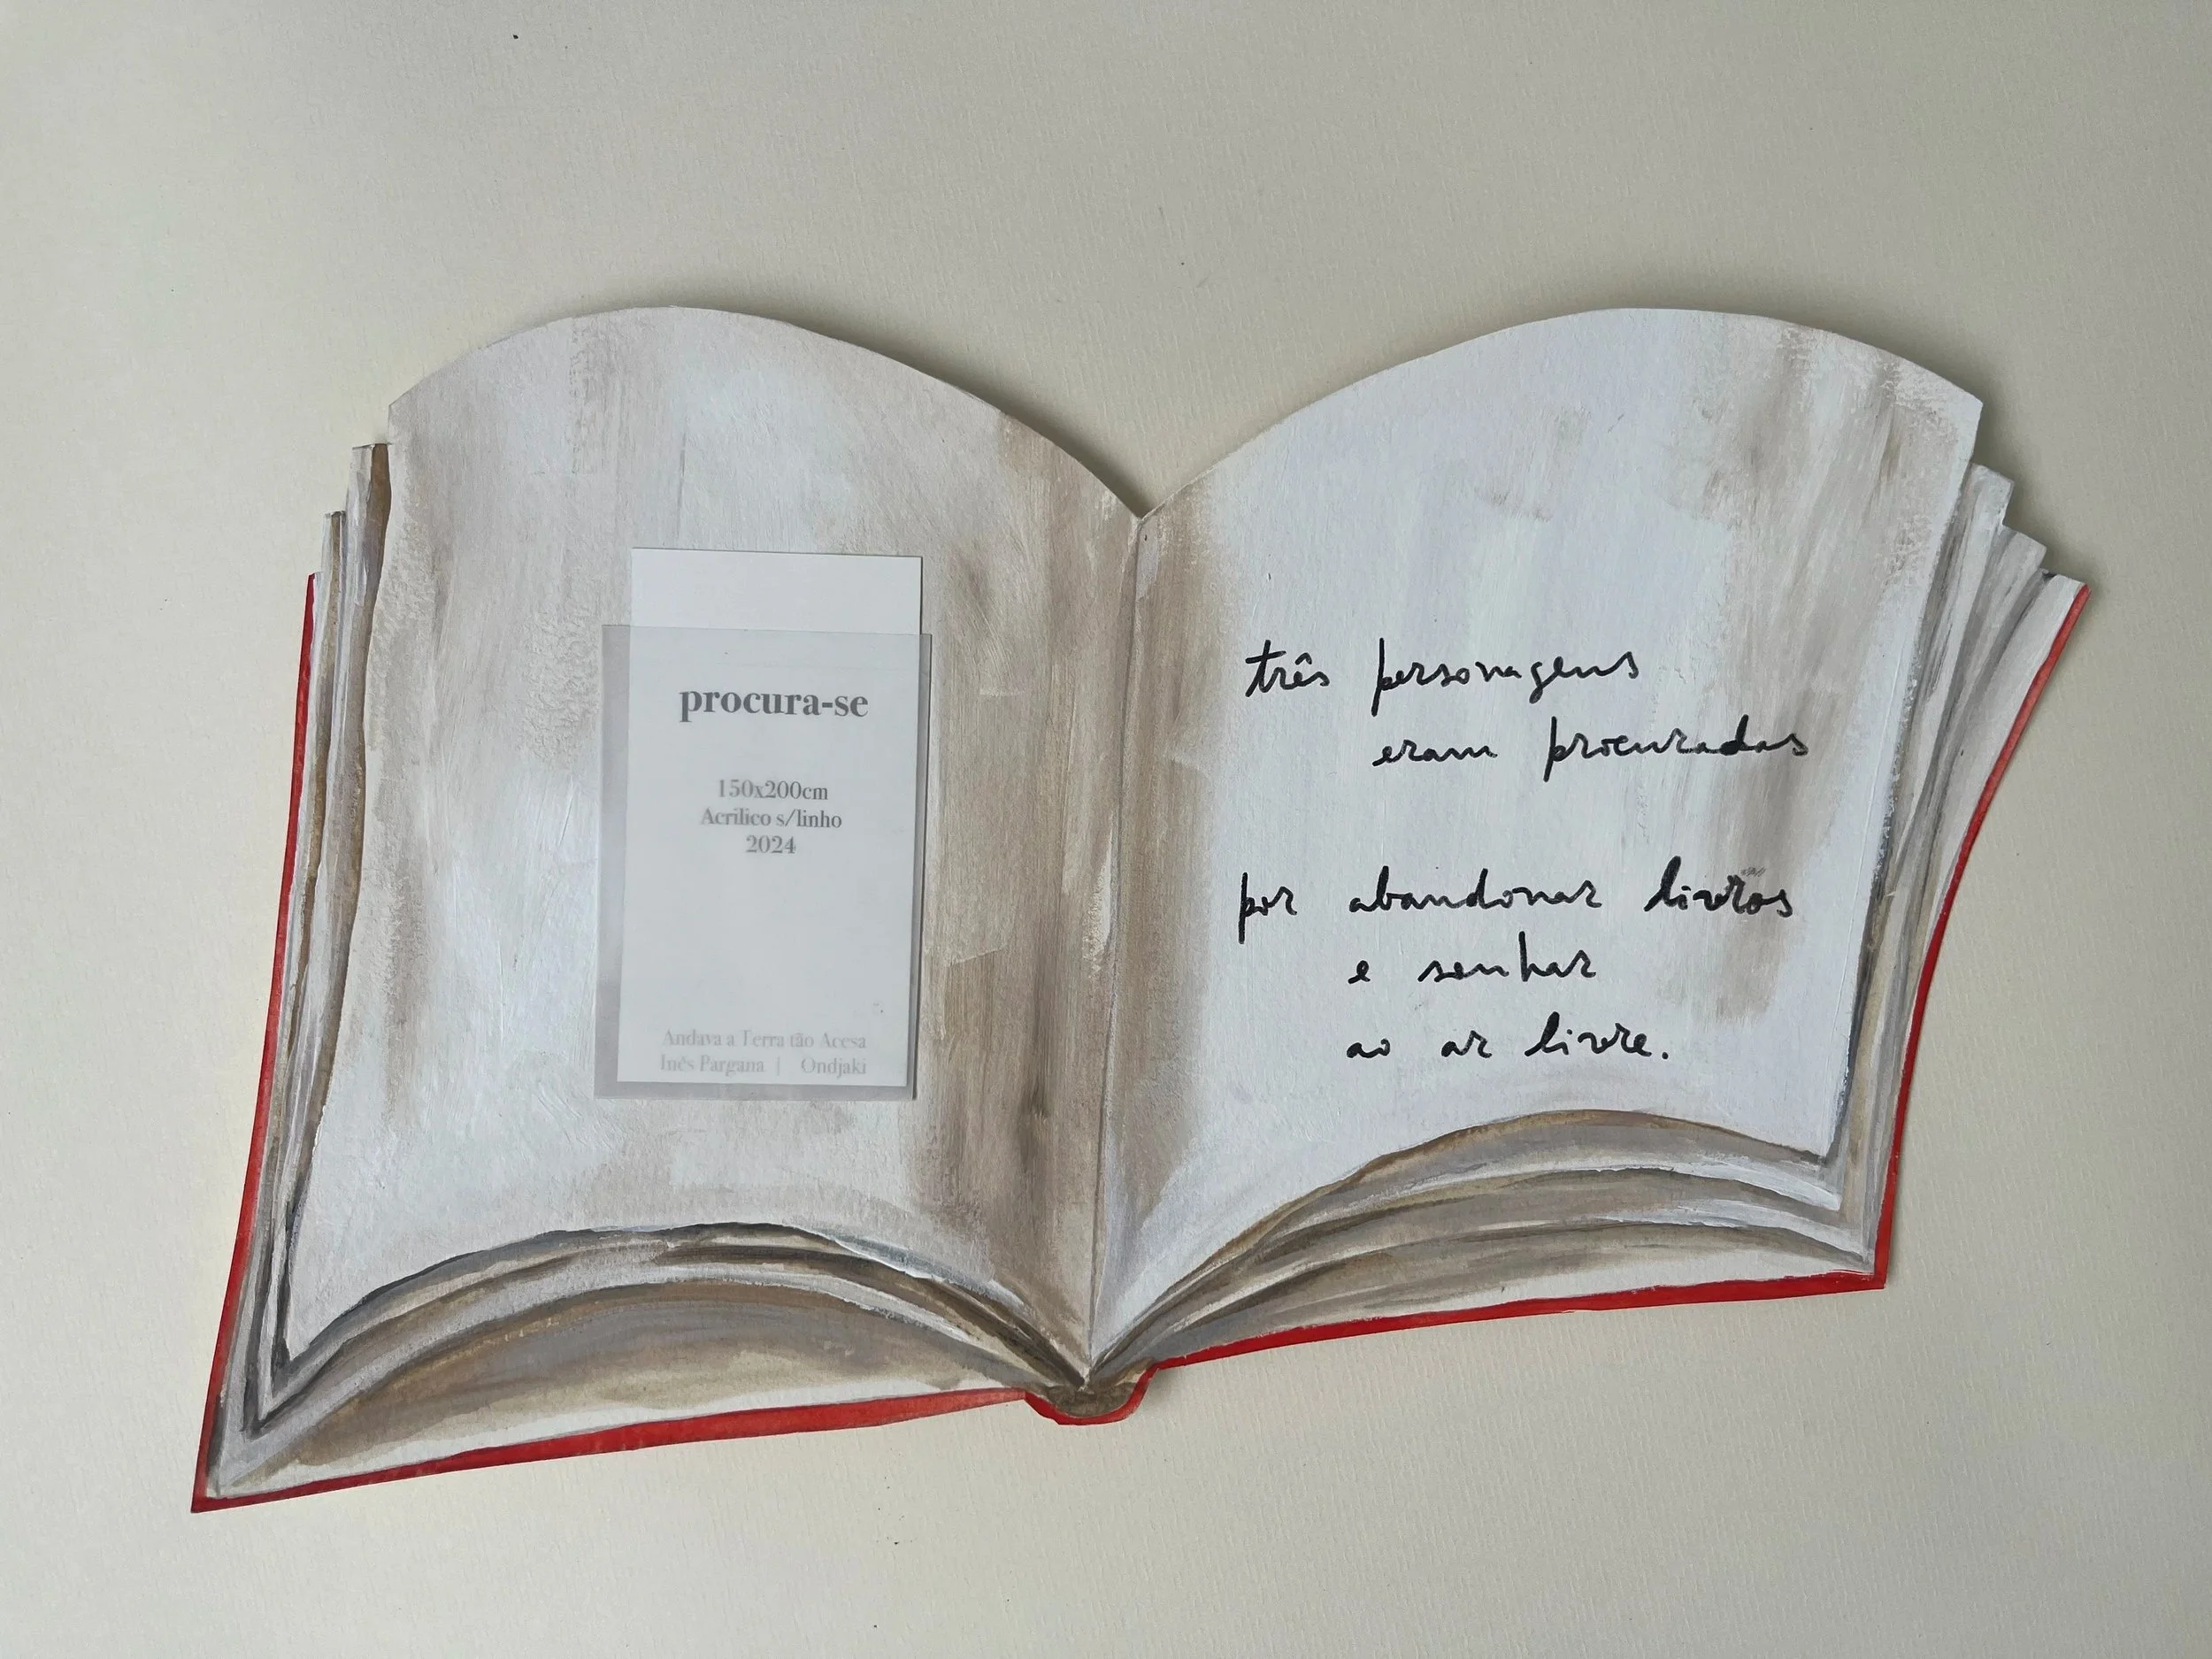 procura-se
150x200cm
Acrílico s/linho
2024
Andava a Terra tão Acesa
Inês Pargana | Ondjaki
três personagens
eram procuradas
por abandonar livros
e sonhar
ao ar livre.